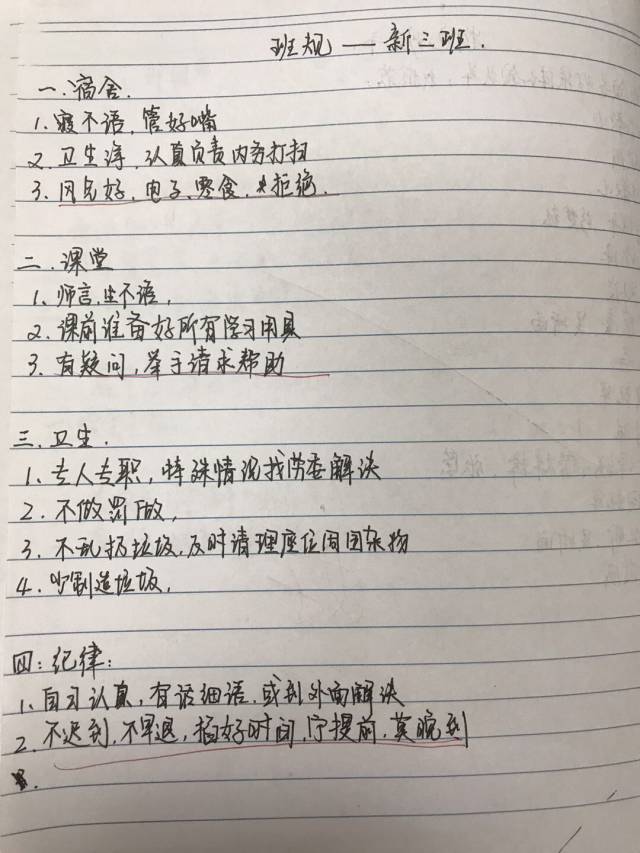 班规——新三班.
一.宿舍.
1.寝不语,管好嘴
2.卫生净,认真负责内务打扫
3.风气好,电子、零食,拒绝.
二.课堂
1、师言,生不语,
2.课前准备好所有学习用具
3.有疑问,举手请求帮助
三.卫生.
1.专人专职,特殊情况找劳委解决
2.不做罚做,
3.不乱扔垃圾,及时清理座位周围杂物
4.少制造垃圾,
四:纪律:
1.自习认真,有话细语,或到外面解决
2.不迟到,不早退,掐好时间,宁提前,莫晚到